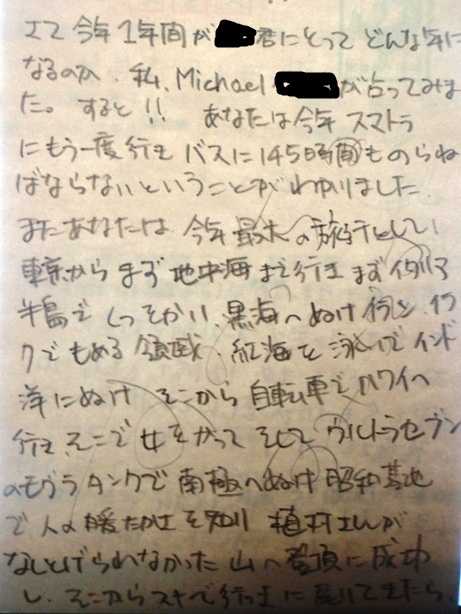 さて今年1年間が 君にとってどんな年に
なるのか、私、Michael が占ってみまし
た。すると!! あなたは今年スマトラ
にもう一度行き バスに145時間ものらね
ばならないということがわかりました
またあなたは 今年最大の旅行として
東京からまず地中海まで行き まずイタリア
半島で 黒海へぬけ イラン、イラ
クでもめる 紅海を泳いでインド
洋にぬけ そこから自転車でハワイへ
行き、そこで女をかって そして ウルトラセブン
のモグラタンクで南極へぬけ 昭和基地
で人の暖たかさを知り 植村さんが
なしとげられなかった山へ登頂に成功
し、そこから 行き